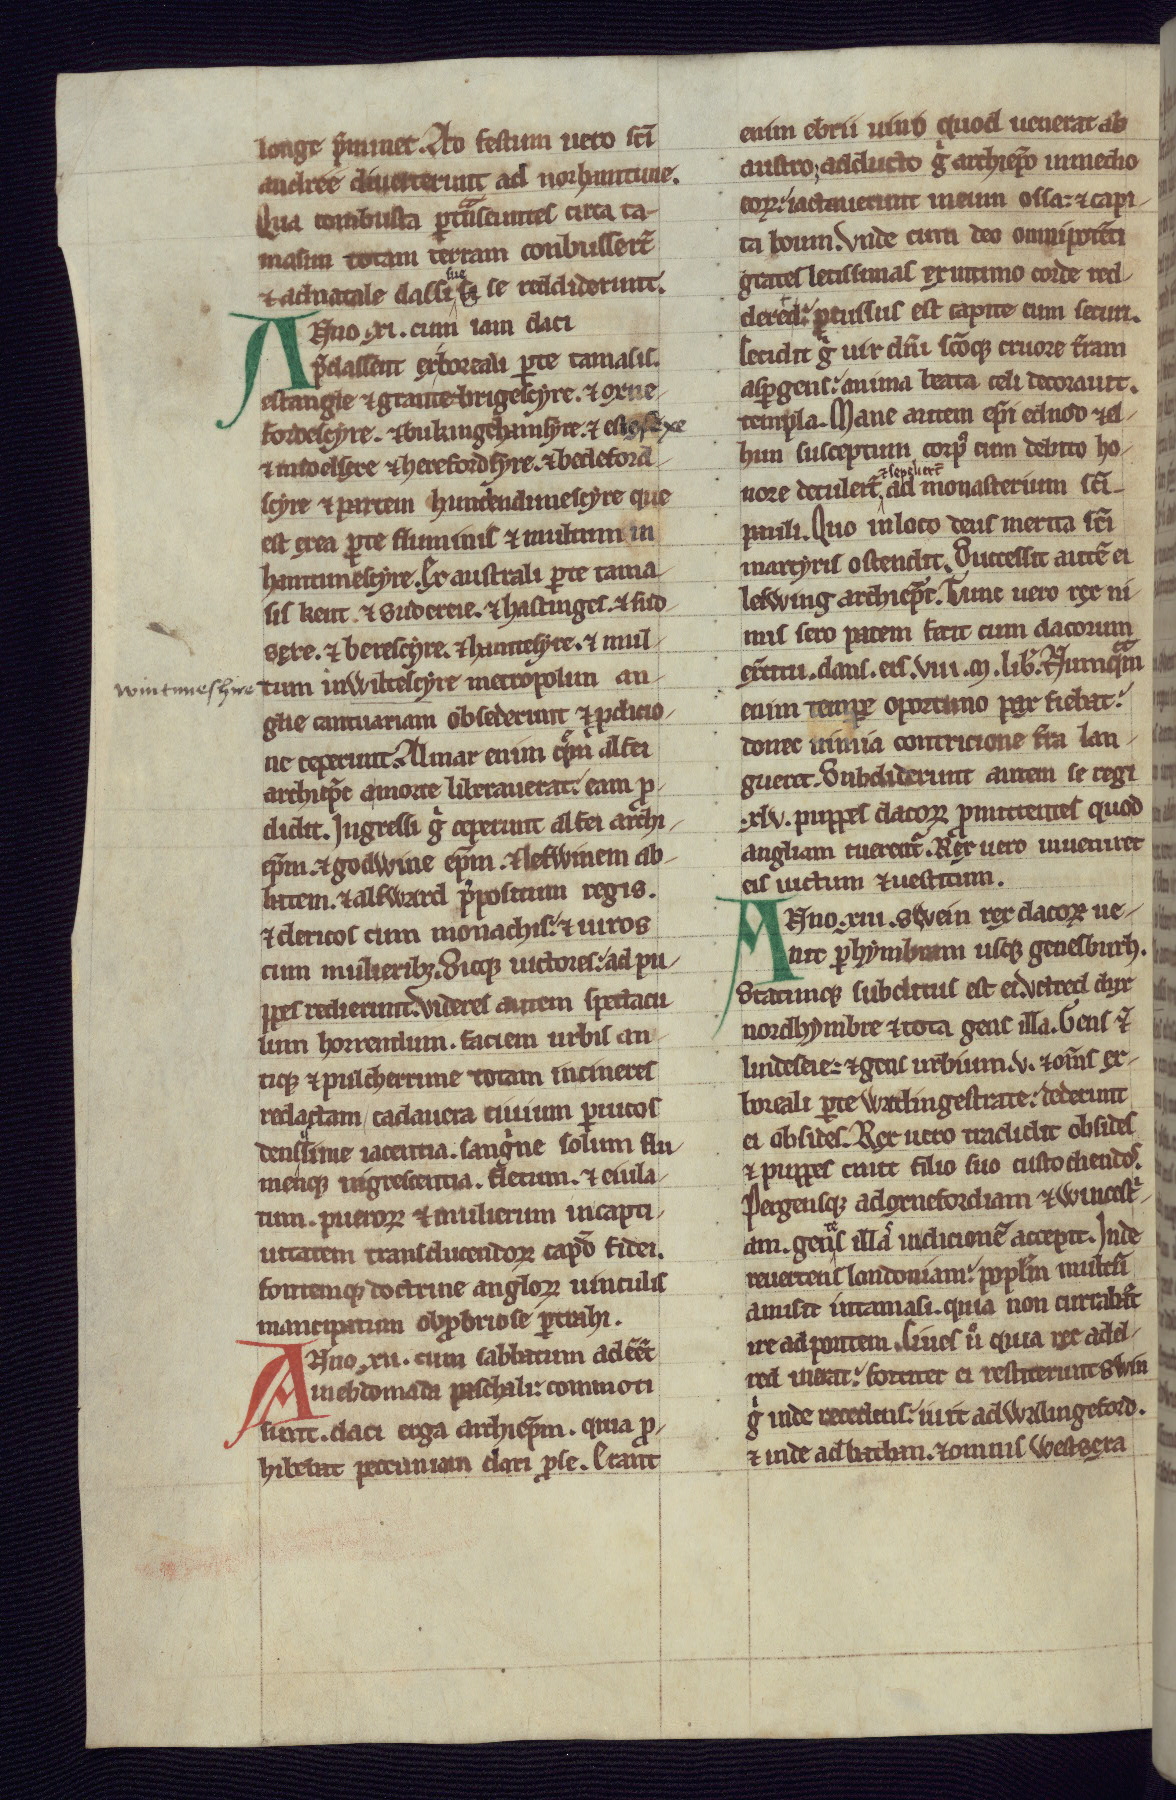 longe p̄minet. Ad festum uero sc̄i
andree diuerterunt ad norhamtune.
Qua combusta ꝑt͛nseuntes circa ta-
masim totam terram conbusser̄t
⁊ ad natale classi sue se reddiderunt.
ANno .xi. cum iam daci
p̄dassent ex boreali ꝑte tamasis.
estangle ⁊ grantebrigescyre. ⁊ oxne
fordescyre. ⁊ bukingehamsyre. ⁊ estsexe
⁊ middelsexe ⁊ herefordsyre. ⁊ bedeford-
scyre ⁊ partem huntendunescyre que
est exea ꝑte fluminis ⁊ multum in
hamtunescyre. Ex australi ꝑte tama-
sis kent. ⁊ sudereie. ⁊ hastinges. ⁊ sud-
sexe. ⁊ berescyre. ⁊ hamtesyre. ⁊ mul-
wintuneshire
tum in Wiltescyre metropolim an-
glie cantuariam obsederunt ⁊ ꝓdicio-
ne ceperunt. Almar enim quem alfei
archiep̄c a morte liberauerat: eam ꝓ-
didit. Ingressi g̊ ceperunt alfei archi-
ep̄m. ⁊ godwine ep̄m. ⁊ lefwinem ab-
batem. ⁊ alfward p̄positum regis.
⁊ clericos cum monachis: ⁊ uiros
cum mulierib;. Sicq; uictores: ad pu-
ppes redierunt. Videres autem spectacu
lum horrendum. faciem urbis an-
tiq; ⁊ pulcherrime totam in cineres
redactam cadauera ciuium ꝑ uicos
densissime iacentia. sanguine solum flu
menq; nigrescentia. fletum. ⁊ eiula-
tum. pueroꝝ ⁊ mulierum in capti-
uitatem transducendoꝝ capđ fidei.
fontemq; doctrine angloꝝ uinculis
mancipatum obprobriose ꝑtrahi.
ANno .xii. cum sabbatum adēēt
in ebdomada paschali: commoti
sunt. daci erga archiep̄m. quia ꝓ-
hibebat pecuniam dari ꝓ se. Erant
enim ebrii uino quod uenerat ab
austro; adducto g̊ archiep̄o in medio
eoꝝ: iactauerunt in eum ossa: ⁊ capi-
ta boum. Vnde cum deo omnipotēti
grates letissimas ex intimo corde red-
deret: ꝑcussus est capite cum securi.
Cecidit g̊ uir dn̄i sc̄oq; cruore t̄ram
aspgens: anima beata celi decorauit.
templa. Mane autem ep̄i ednod ⁊ el-
hun susceptum corpꝰ cum debito ho-
nore detuler̄t ⁊ sepelier̄t ad monasterium sc̄i
pauli. Quo in loco deus merita sc̄i
martyris ostendit. Successit autē ei
lefwing archiep̄c. Tunc uero rex ni-
mis sero pacem fecit cum dacorum
ex̄ercitu. dans. eis. viii. m. lib͛. Numquam
enim tempe oportuno pax fiebat:
donec nimia contricione t̄ra lan-
gueret. Subdiderunt autem se regi
.xlv. puppes dacoꝝ ꝓmittentes quod
angliam tuerent͛. Rex uero inueniret
eis uictum ⁊ uestitum.
ANno .xiii. swein rex dacoꝝ ue-
nit ꝑ hymbram usq; genesburh.
Statimq; subditus est ei vctred dux
nordhymbre ⁊ tota gens illa. Gens ⁊
lindeseie: ⁊ gens urbium. v. ⁊ om̄s ex-
boreali ꝑte watelingestrate: dederunt
ei obsides. Rex uero tradidit obsides
⁊ puppes cnut filio suo custodiendos.
Pergensq; ad oxnefordiam ⁊ wincestr͛-
am. gentes illas in dicionē accepit. Inde
reuertens londoniam: pp̄lm multū
amisit in tamasi. quia non curabat
ire ad pontem. Ciues ů quia rex adel-
red inerat: fortiter ei restiterunt swin
g̊ inde recedens: iuit ad Walingeford.
⁊ inde ad batham. ⁊ omnis westsexa